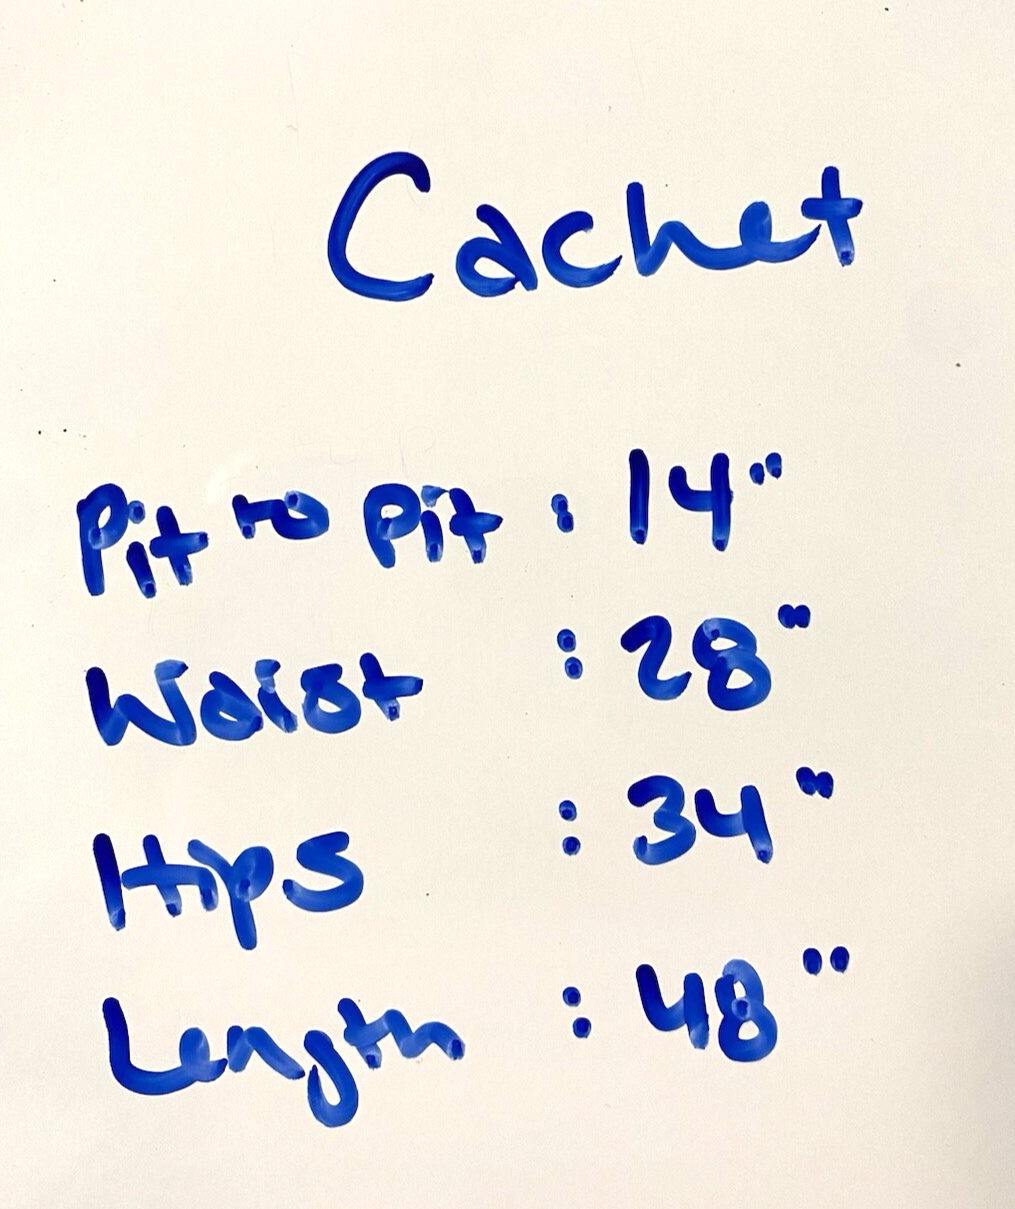 Cachet
Pit to Pit : 14"
Waist : 28"
Hips : 34"
Length : 48"